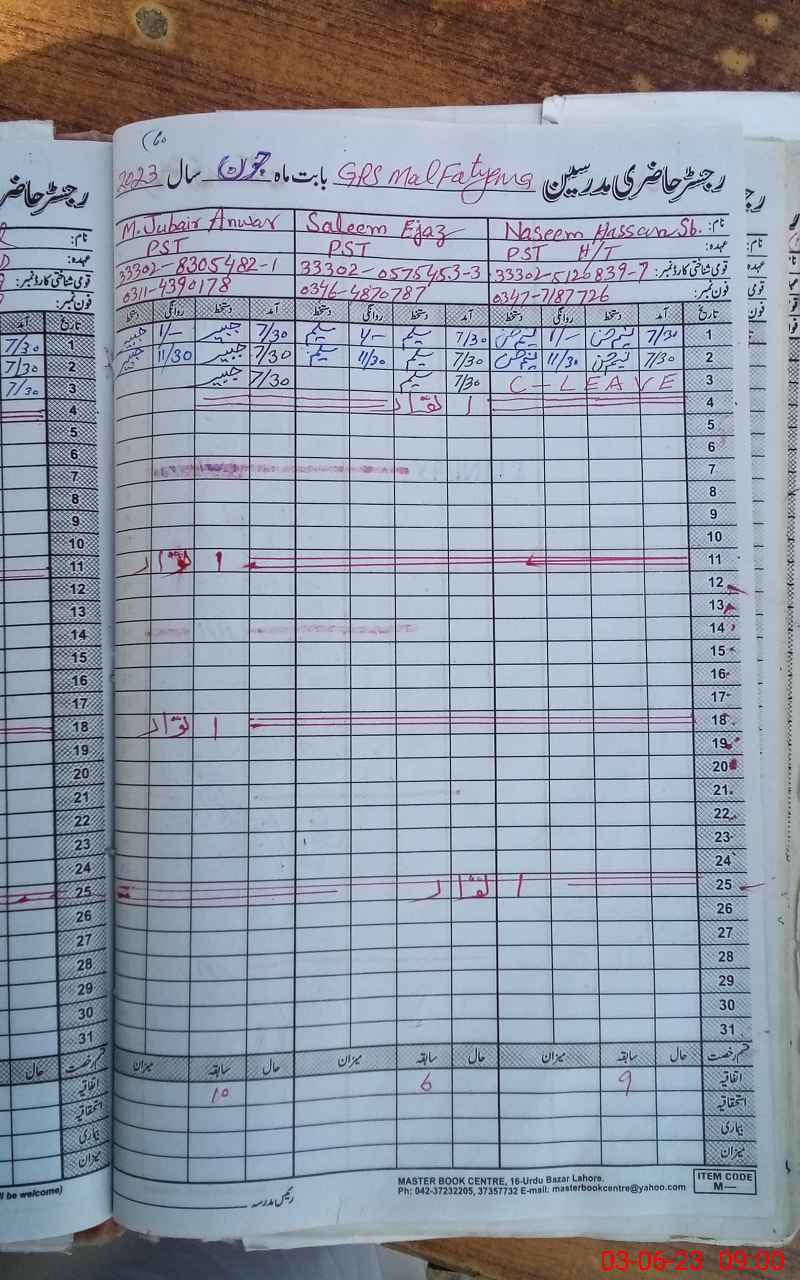 (60
رجسٹر حاضری مدرسین GPS Mal Fatyana بابت ماہ جون سال 2023
نام: Naseem Hassan Sb. Saleem Ejaz M. Jubair Anwar
عہدہ: PST H/T PST PST
قومی شناختی کارڈ نمبر: 33302-5126839-7 33302-0575453-3 33302-8305482-1
فون نمبر: 0347-7187726 0346-4870787 0311-4390178
تاریخ آمد دستخط روانگی دستخط آمد دستخط روانگی دستخط آمد دستخط روانگی دستخط
1 7/30 1/- 7/30 سلیم 1/- سلیم 7/30 جبیر 1/- جبیر
2 7/30 11/30 7/30 سلیم 11/30 سلیم 7/30 جبیر 11/30 جبیر
3 C-LEAVE 7/30 سلیم 7/30 جبیر
4 اتوار
5
6
7
8
9
10
11 اتوار
12
13
14
15
16
17
18 اتوار
19
20
21
22
23
24
25 اتوار
26
27
28
29
30
31
قسم رخصت حال سابقہ میزان حال سابقہ میزان حال سابقہ میزان
اتفاقیہ 9 6 10
استحقاقیہ
بیماری
میزان
رئیس مدرسہ
MASTER BOOK CENTRE, 16-Urdu Bazar Lahore.
Ph: 042-37232205, 37357732 E-mail: masterbookcentre@yahoo.com
ITEM CODE
M—
03-06-23 09:00